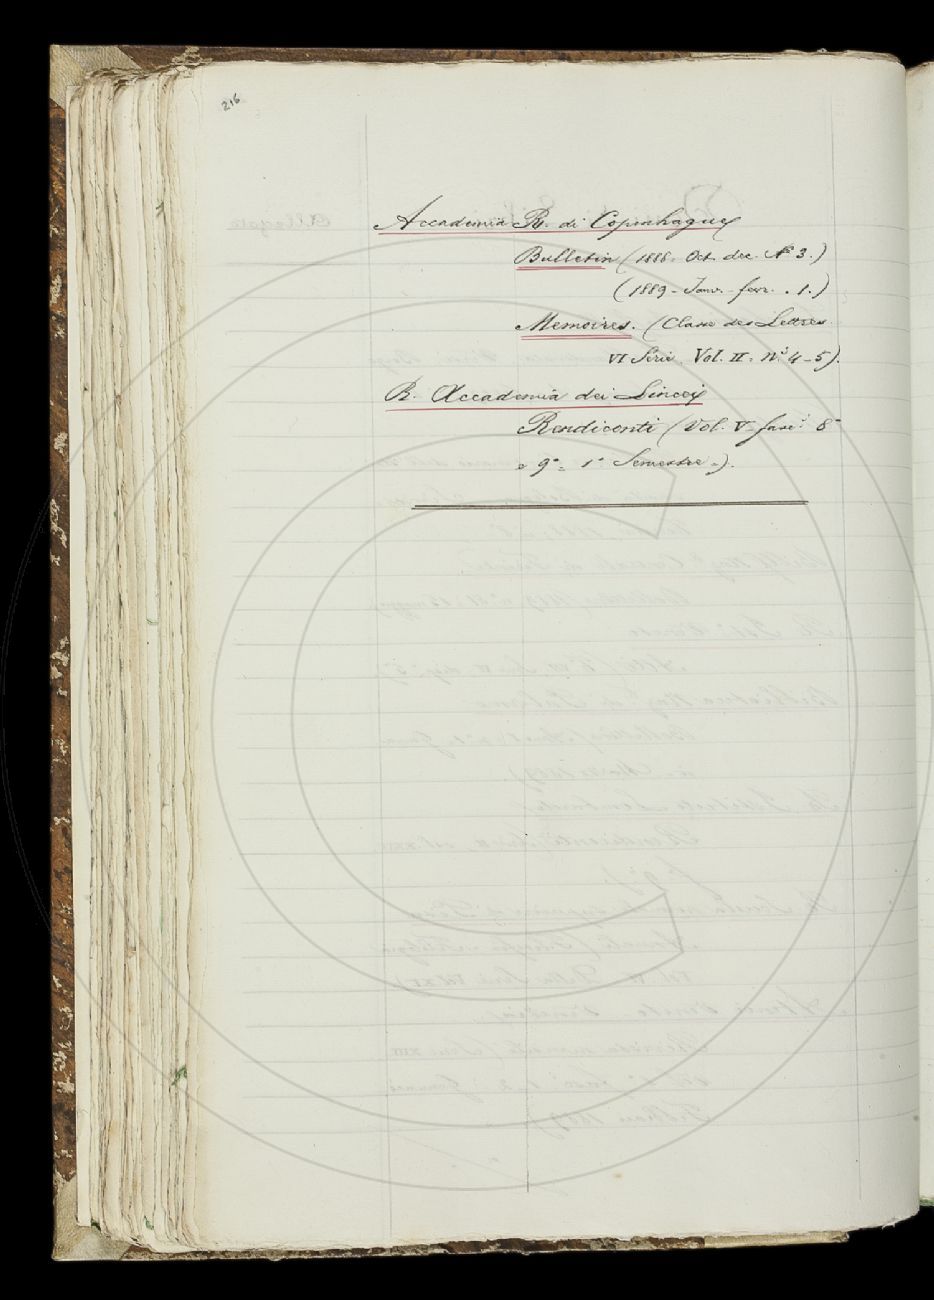 216
Accademia R. di Copenhaguey
Bulletin (1888. Oct. dec. N° 3.)
(1889 - Janv. - fevr. . 1.)
Memoires. (Classe des Lettres.
VI Serie. Vol. II. n.i 4-5).
R. Accademia dei Lincei
Rendiconti (Vol. V fasc.i 8°
e 9° 1° Semestre).